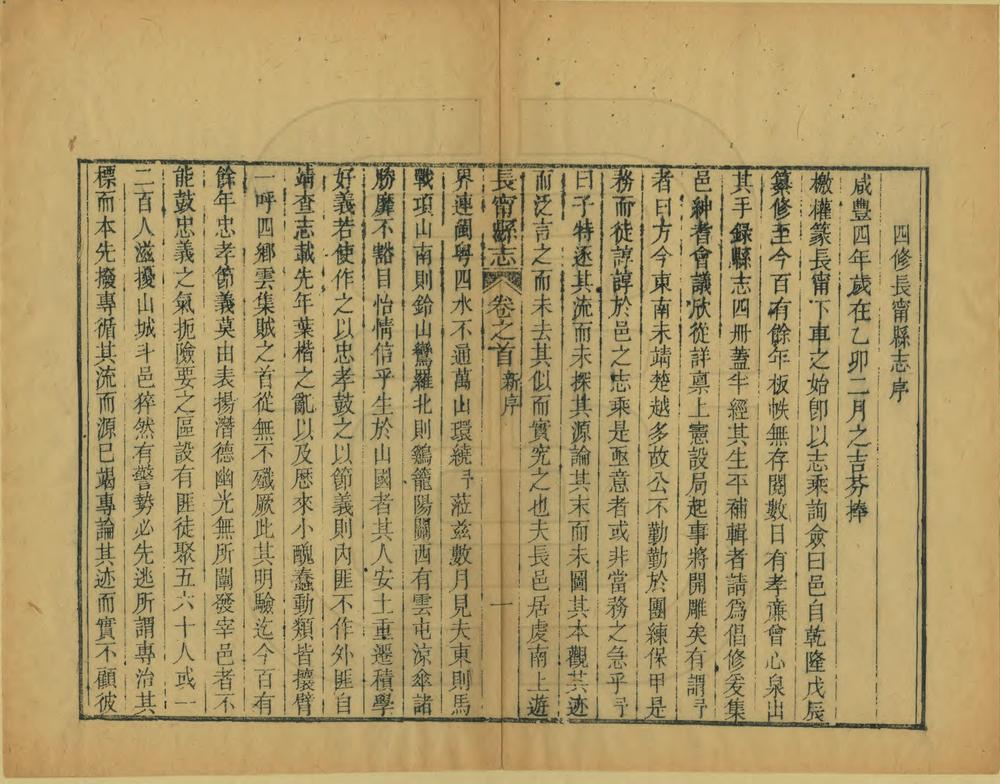 四修長甯縣志序
咸豐四年歲在乙卯二月之吉芬捧
檄權篆長甯下車之始卽以志乘詢僉曰邑自乾隆戊辰
纂修至今百有餘年板帙無存閱數日有孝亷會心泉出
其手錄縣志四冊蓋半經其生平補輯者請爲倡修爰集
邑紳者會議欣從詳稟上憲設局起事將開雕矣有謂予
者曰方今東南未靖楚越多故公不勤勤於團練保甲是
務而徒諄諄於邑之志乘是亟意者或非當務之急乎予
曰子特逐其流而未探其源論其末而未圖其本觀其迹
而泛言之而未去其似而實究之也夫長邑居虔南上遊
長甯縣志 卷之首 新序 一
界連閩粵四水不通萬山環繞予蒞兹數月見夫東則馬
戰項山南則鈴山鸞羅北則鷄籠陽關西有雲屯涼傘諸
勝靡不豁目怡情信乎生於山國者其人安土重遷積學
好義若使作之以忠孝鼓之以節義則內匪不作外匪自
靖查志載先年葉楷之亂以及歷來小醜蠢動類皆攘臂
一呼四鄉雲集賊之首從無不殲厥此其明驗迄今百有
餘年忠孝節義莫由表揚潛德幽光無所闡發宰邑者不
能鼓忠義之氣扼險要之區設有匪徒聚五六十人或一
二百人滋擾山城斗邑猝然有警勢必先逃所謂專治其
標而本先撥專循其流而源已竭專論其迹而實不顧彼